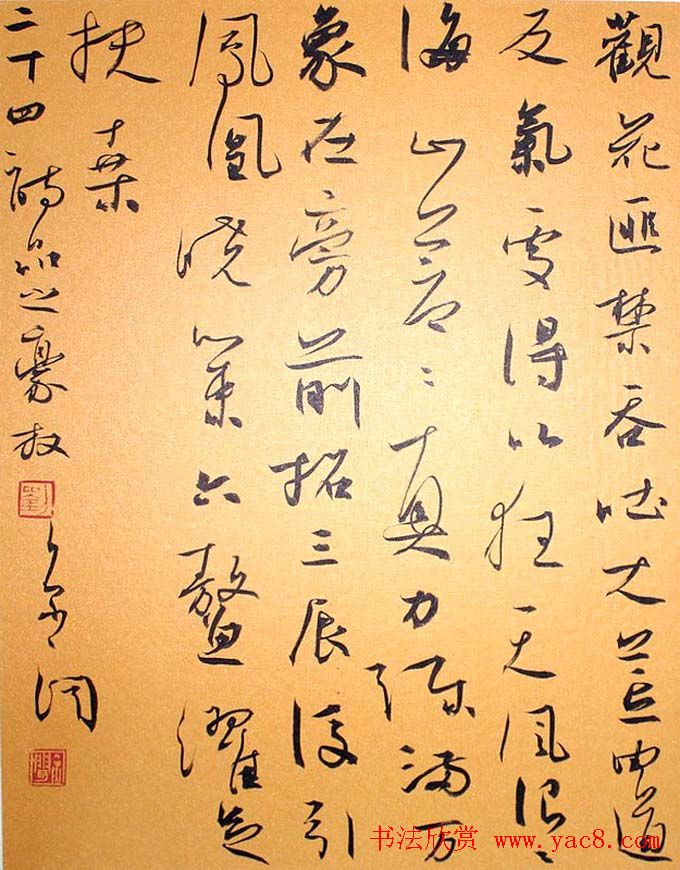 觀花匪禁吞吐大荒由道
反氣處得以狂天風浪〻
海山蒼〻真力彌滿万
象在旁前招三辰後引
鳳凰曉策六鰲濯足
扶桑
二十四詩品之豪放
劉
书法欣赏 www.yac8.com